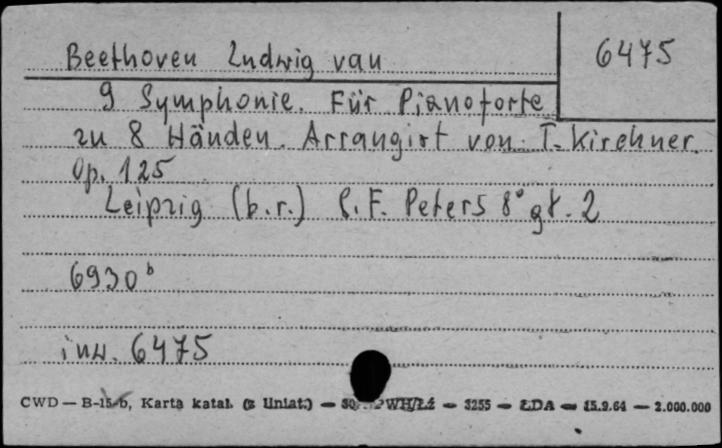 Beethoven Ludwig van
6475
9 Symphonie. Für Pianoforte
zu 8 Händen. Arrangirt von T. Kirchner.
Op. 125
Leipzig (b.r.) C. F. Peters 8° gł. 2
6930 b
inw. 6475
CWD — B-15/b, Karta katal. (z liniat.) — PWH/Łź — 3255 — ŁDA — 15.9.64 — 2.000.000